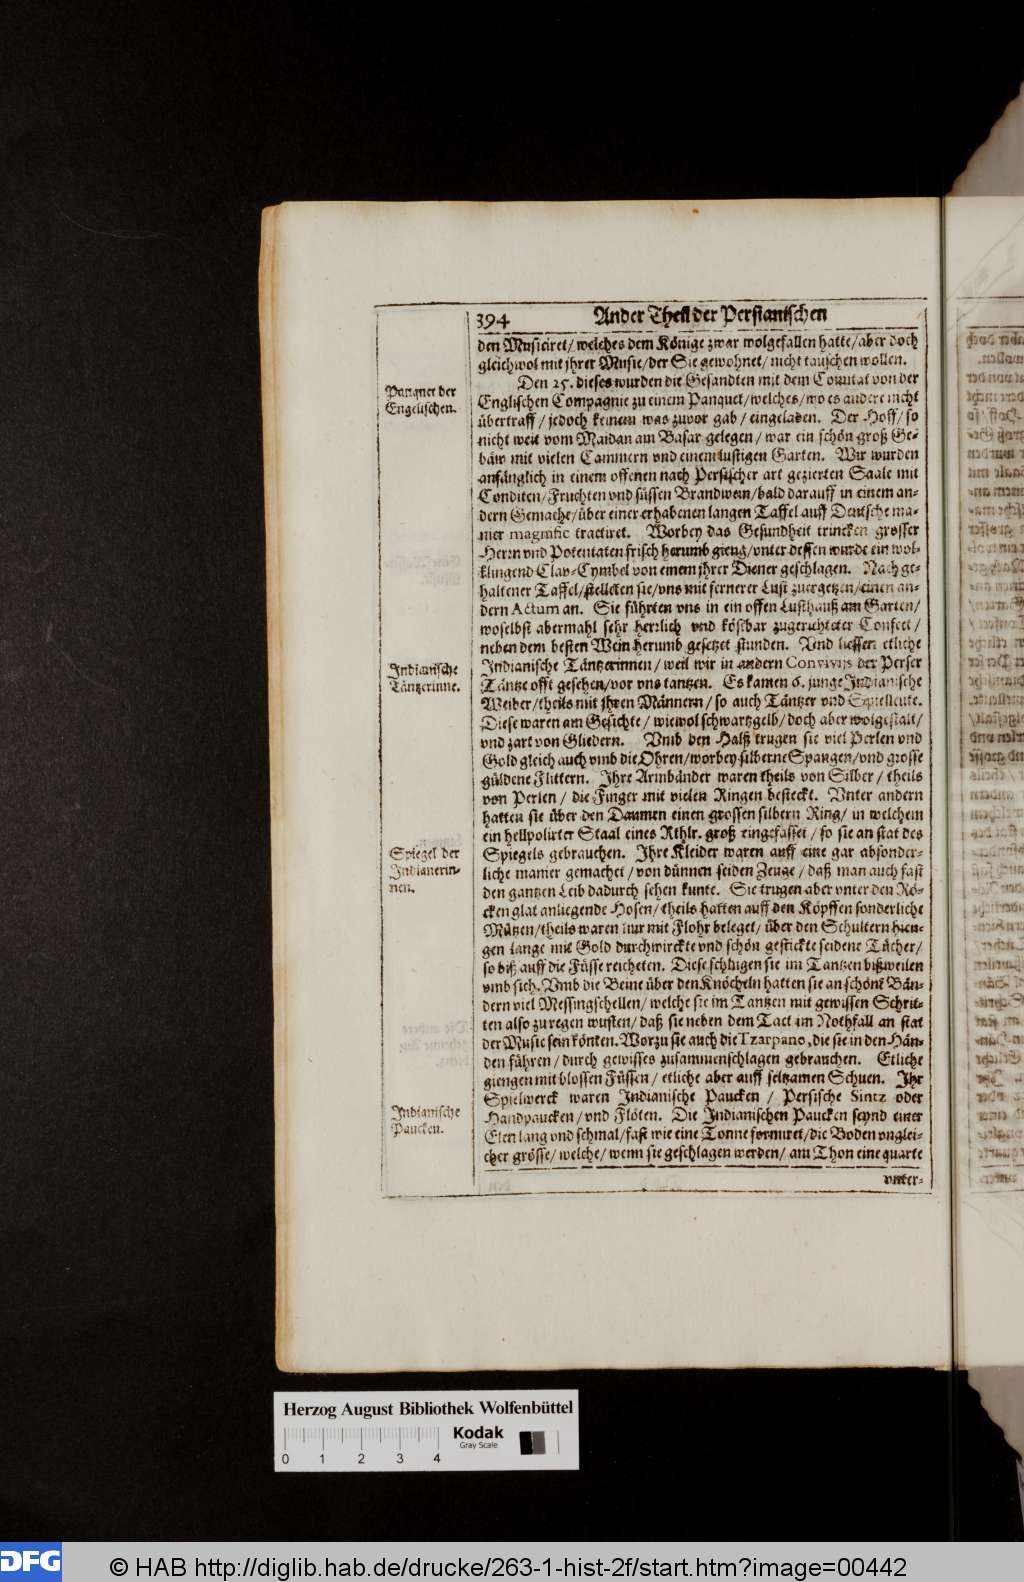 394 Ander Theil der Persianischen
den Musiciret/ welches dem Könige zwar wolgefallen hatte/ aber doch
gleichwol mit jhrer Music/ der Sie gewohnet/ nicht tauschen wollen.
Panquet der
Engelischen.
Den 25. dieses wurden die Gesandten mit dem Comitat von der
Englischen Compagnie zu einem Panquet/ welches/ wo es andere nicht
übertraff/ jedoch keinem was zuvor gab/ eingeladen. Der Hoff/ so
nicht weit vom Maidan am Basar gelegen/ war ein schön groß Ge-
bäw mit vielen Cammern vnd einem lustigen Garten. Wir wurden
anfänglich in einem offenen nach Persischer art gezierten Saale mit
Conditen/ Fruchten vnd süssen Brandwein/ bald darauff in einem an-
dern Gemache/ über einer erhabenen langen Taffel auff Deutsche ma-
nier magnific tractiret. Worbey das Gesundheit trincken grosser
Herrn vnd Potentaten frisch herumb gieng/ vnter dessen wurde ein wol-
klingend Clav-Cymbel von einem jhrer Diener geschlagen. Nach ge-
haltener Taffel/ stelleten sie/ vns mit fernerer Lust zuergetzen/ einen an-
dern Actum an. Sie führten vns in ein offen Lusthauß am Garten/
woselbst abermahl sehr herrlich vnd köstbar zugerichteter Confect/
neben dem besten Wein herumb gesetzet stunden. Vnd liessen etliche
Indianische
Täntzerinne.
Indianische Täntzerinnen/ weil wir in andern Convivijs der Perser
Täntze offt gesehen/ vor vns tantzen. Es kamen 6. junge Indianische
Weiber/ theils mit jhren Männern/ so auch Täntzer vnd Spielleute.
Diese waren am Gesichte/ wiewol schwartzgelb/ doch aber wolgestalt/
vnd zart von Gliedern. Vmb den Halß trugen sie viel Perlen vnd
Gold gleich auch vmb die Ohren/ worbey silberne Spangen/ vnd grosse
güldene Flittern. Ihre Armbänder waren theils von Silber/ theils
von Perlen/ die Finger mit vielen Ringen besteckt. Vnter andern
hatten sie über den Daumen einen grossen silbern Ring/ in welchem
ein hellpolirter Staal eines Rthlr. groß eingefasset/ so sie an stat des
Spiegel der
Indianerin-
nen.
Spiegels gebrauchen. Ihre Kleider waren auff eine gar absonder-
liche manier gemachet/ von dünnen seiden Zeuge/ daß man auch fast
den gantzen Leib dadurch sehen kunte. Sie trugen aber vnter den Rö-
cken glat anliegende Hosen/ theils hatten auff den Köpffen sonderliche
Mützen/ theils waren nur mit Flohr beleget/ über den Schultern hien-
gen lange mit Gold durchwirckte vnd schön gestickte seidene Tücher/
so biß auff die Füsse reicheten. Diese schlugen sie im Tantzen bißweilen
vmb sich. Vmb die Beine über den Knöcheln hatten sie an schönē Bän-
dern viel Messingschellen/ welche sie im Tantzen mit gewissen Schrit-
ten also zu regen wusten/ daß sie neben dem Tact im Nothfall an stat
der Music sein könten. Worzu sie auch die Tzarpano, die sie in den Hän-
den führen/ durch gewisses zusammenschlagen gebrauchen. Etliche
giengen mit blossen Füssen/ etliche aber auff seltzamen Schuen. Ihr
Spielwerck waren Indianische Paucken/ Persische Sintz oder
Indianische
Paucken.
Handpaucken/ vnd Flöten. Die Indianischen Paucken seynd einer
Elen lang vnd schmal/ fast wie eine Tonne formiret/ die Boden vnglei-
cher grösse/ welche/ wenn sie geschlagen werden/ am Thon eine quarte
vnter-
Herzog August Bibliothek Wolfenbüttel
Kodak
Gray Scale
0 1 2 3 4
DFG
© HAB http://diglib.hab.de/drucke/263-1-hist-2f/start.htm?image=00442